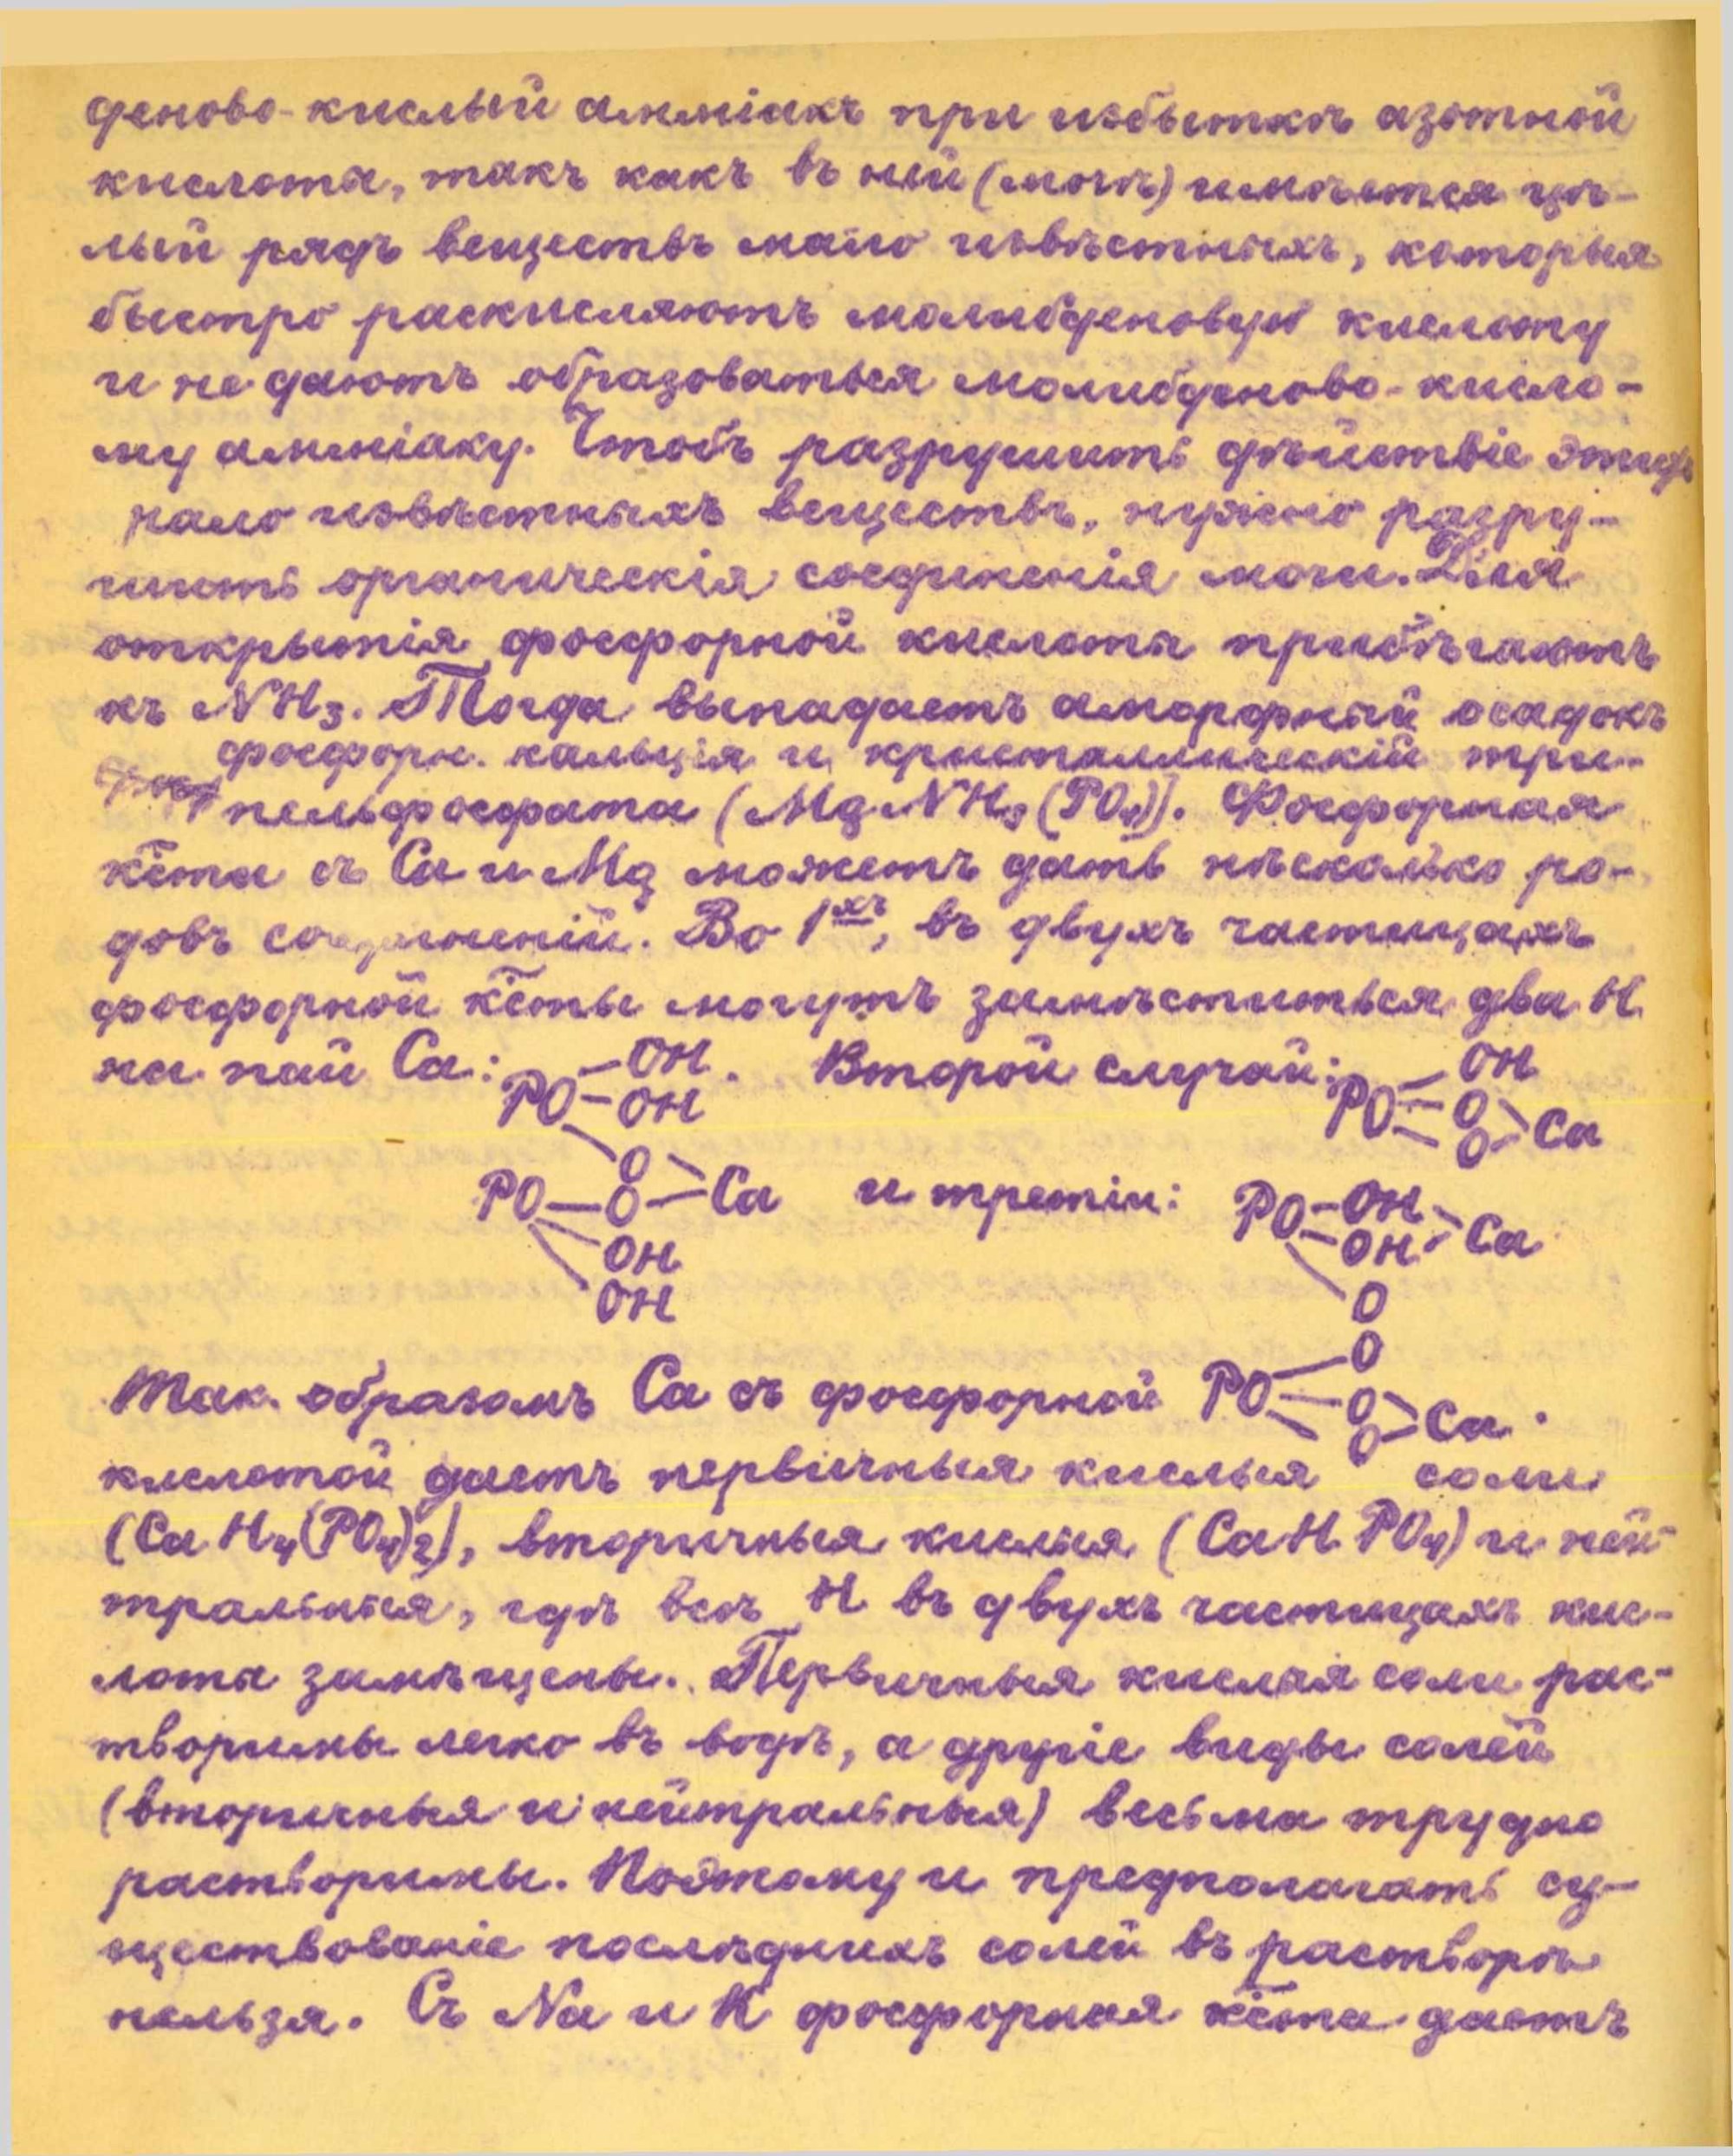 деново-кислый амміакъ при избыткѣ азотной
кислоты, такъ какъ въ ней (мочѣ) имѣется цѣ-
лый рядъ веществъ мало извѣстныхъ, которыя
быстро раскисляютъ молибденовую кислоту
и не даютъ образоваться молибденово-кисло-
му амміаку. Чтобъ разрушить дѣйствіе этихъ
мало извѣстныхъ веществъ, нужно разру-
шить органическія соединенія мочи. Для
открытія фосфорной кислоты прибѣгаютъ
къ NH₃. Тогда выпадаетъ аморфный осадокъ
фосфорн. кальція и кристаллическій три-
пельфосфата (MgNH₃(PO₄)]. Фосфорная
к̅ста съ Ca и Mg можетъ дать нѣсколько ро-
довъ соединеній. Во 1ˣᵚ, въ двухъ частицахъ
фосфорной к̅сты могутъ замѣститься два H
на пай Ca: PO–OH –OH. Второй случай: PO–OH =O =O >Ca
O
PO–O >Ca и третіи: PO–OH –OH >Ca
OH
OH
O
O
Так. образомъ Ca съ фосфорной PO–O –O >Ca.
кислотой даетъ первичныя кислыя соли
(CaH₄(PO₄)₂), вторичныя кислыя (CaHPO₄) и ней-
тральныя, гдѣ всѣ H въ двухъ частицахъ кис-
лоты замѣщены. Первичныя кислыя соли рас-
творимы легко въ водѣ, а другіе виды солей
(вторичныя и нейтральныя) весьма трудно
растворимы. Поэтому и предполагать су-
ществованіе послѣднихъ солей въ растворѣ
нельзя. Съ Na и K фосфорная к̅ста даетъ